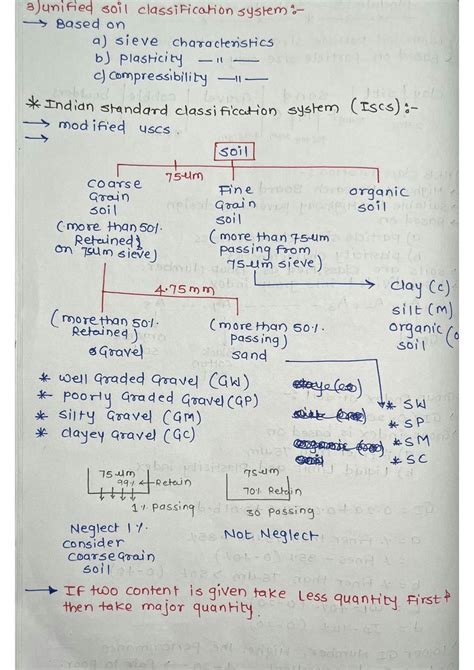 3) unified soil classification system:-
→ Based on
a) sieve characteristics
b) plasticity —11—
c) compressibility —11—
* Indian standard classification system (ISCS):-
→ modified uscs.
→
soil
75um
coarse Grain soil
(more than 50% Retained on 75um sieve)
Fine Grain soil
(more than 75um passing from 75um sieve)
organic soil
→ clay (c)
silt (M)
organic (o
soil
4.75mm
(more than 50% Retained)
Gravel
(more than 50% passing)
sand
* well Graded Gravel (GW)
* poorly Graded Gravel (GP)
* silty Gravel (GM)
* clayey Gravel (GC)
* SW
* SP
* SM
* SC
75um
99% ← Retain
1% Passing
75um
70% Retain
30 Passing
Neglect 1%.
consider
coarse Grain
soil
Not Neglect
→ If two content is given take less quantity first &
then take major quantity.